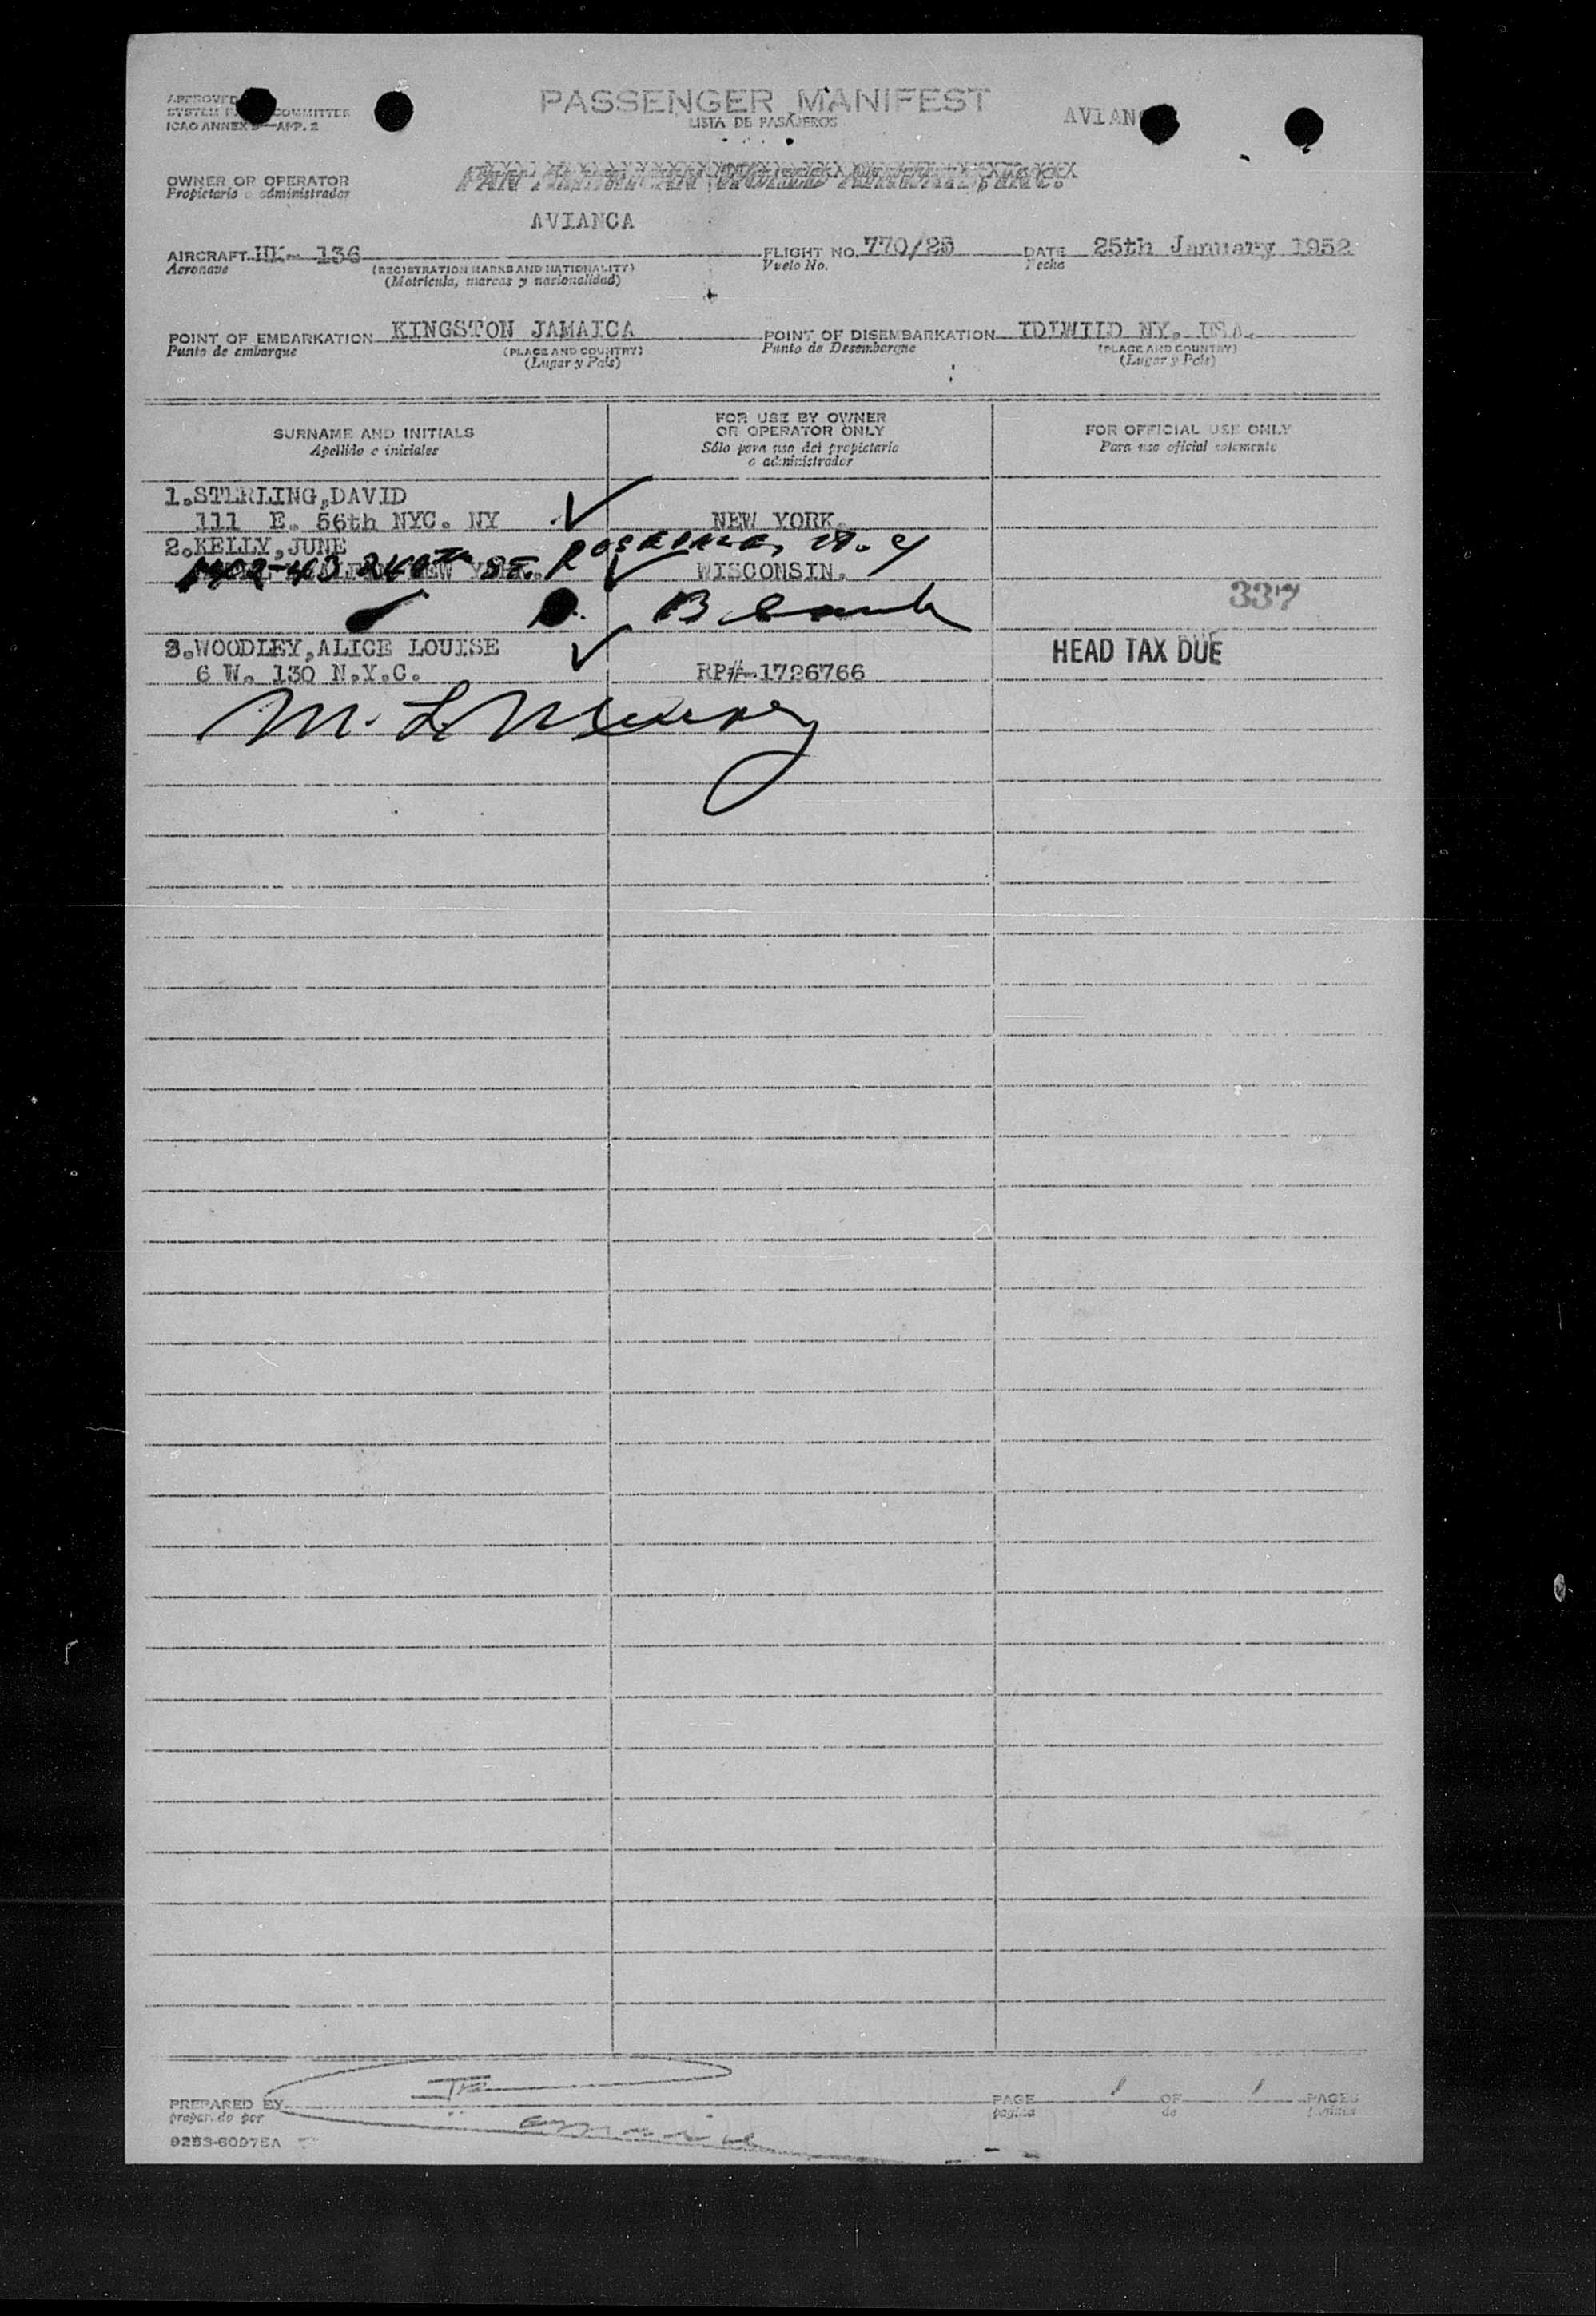 APPROVED
SYSTEM COMMITTEE
ICAO ANNEX 9—APP. 2
PASSENGER MANIFEST
LISTA DE PASAJEROS
AVIAN
OWNER OR OPERATOR
Propietario o administrador
PAN AMERICAN WORLD AIRWAYS, INC.
AVIANCA
AIRCRAFT HK- 136
Aeronave
(REGISTRATION MARKS AND NATIONALITY)
(Matricula, marcas y nacionalidad)
FLIGHT NO. 770/25
Vuelo No.
DATE 25th January 1952
Fecha
POINT OF EMBARKATION KINGSTON JAMAICA
Punto de embarque
(PLACE AND COUNTRY)
(Lugar y País)
POINT OF DISEMBARKATION IDIWIID NY. USA.
Punto de Desembarque
(PLACE AND COUNTRY)
(Lugar y País)
SURNAME AND INITIALS
Apellido e iniciales
FOR USE BY OWNER
OR OPERATOR ONLY
Sólo para uso del propietario
o administrador
FOR OFFICIAL USE ONLY
Para uso oficial solamente
1.STERLING,DAVID
111 E. 56th NYC. NY NEW YORK.
2.KELLY,JUNE
240th St. Rosedale, N.Y
WISCONSIN.
337
3.WOODLEY,ALICE LOUISE
HEAD TAX DUE
6 W. 130 N.Y.C. RP#-1726766
M. L.
PREPARED BY
preparado por
PAGE 1 OF 1 PAGES
pagina de
9253-60975A